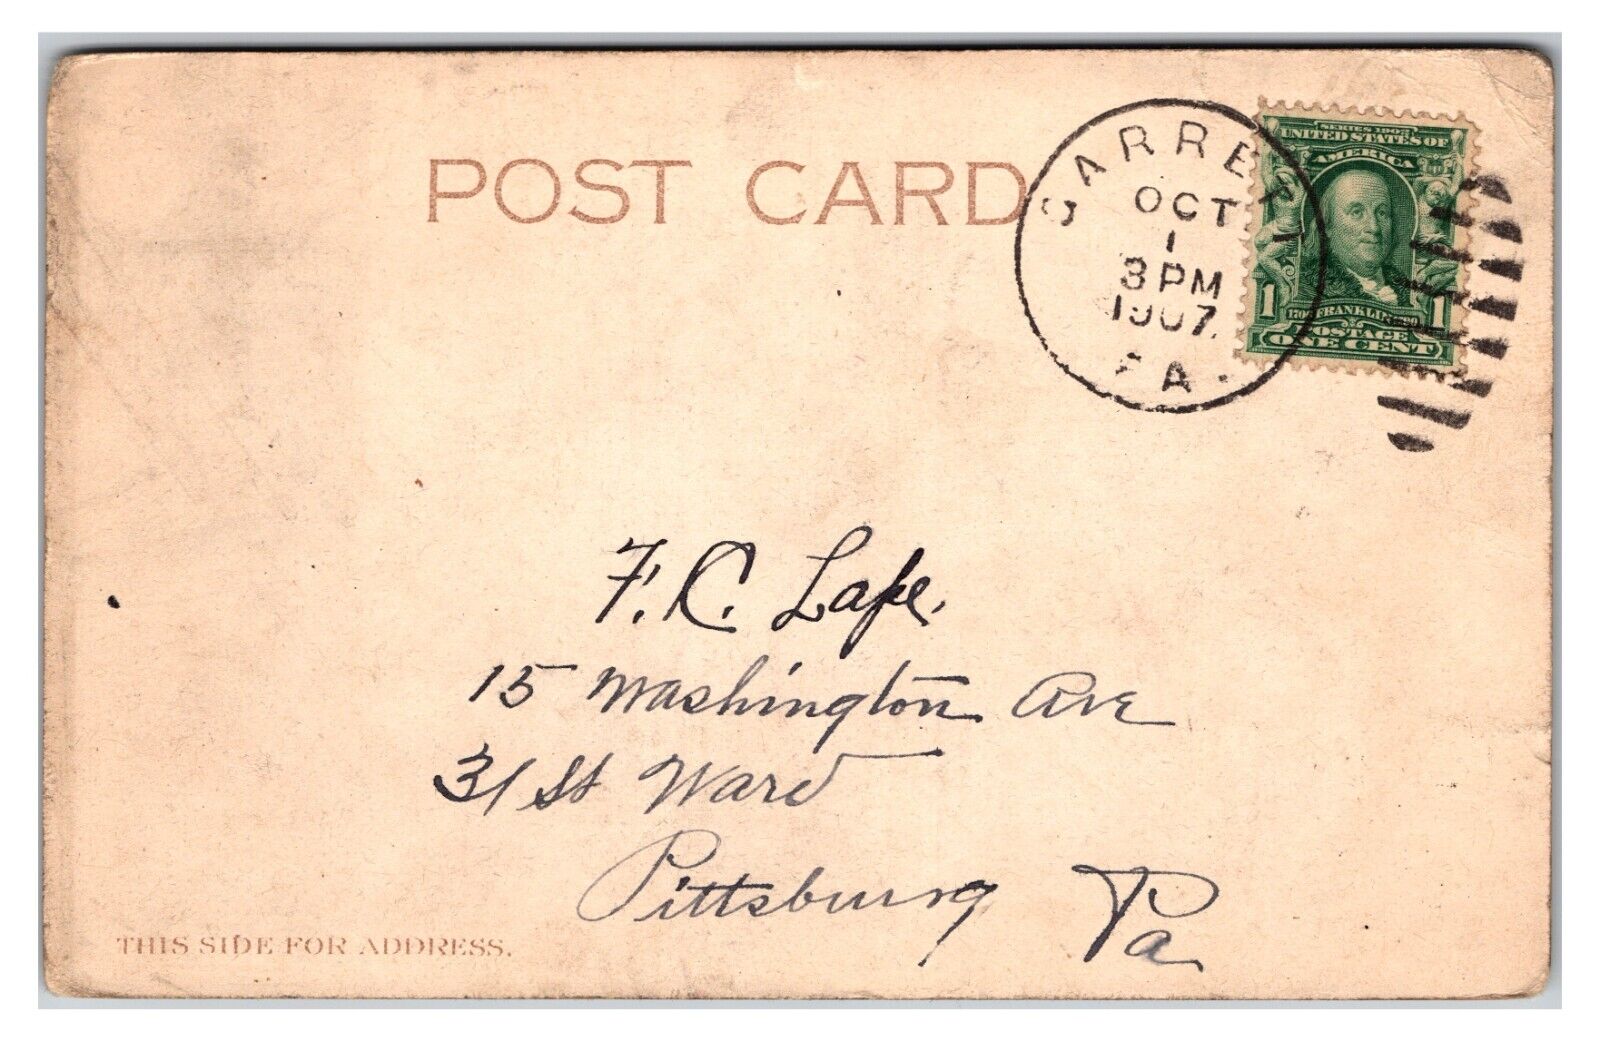 POST CARD
GARRETT
OCT
1
3 PM
1907
PA.
SERIES 1902
UNITED STATES OF
AMERICA
1 1
FRANKLIN
POSTAGE
ONE CENT
F. C. Lape.
15 Washington Ave
31 St Ward
Pittsburg Pa
THIS SIDE FOR ADDRESS.